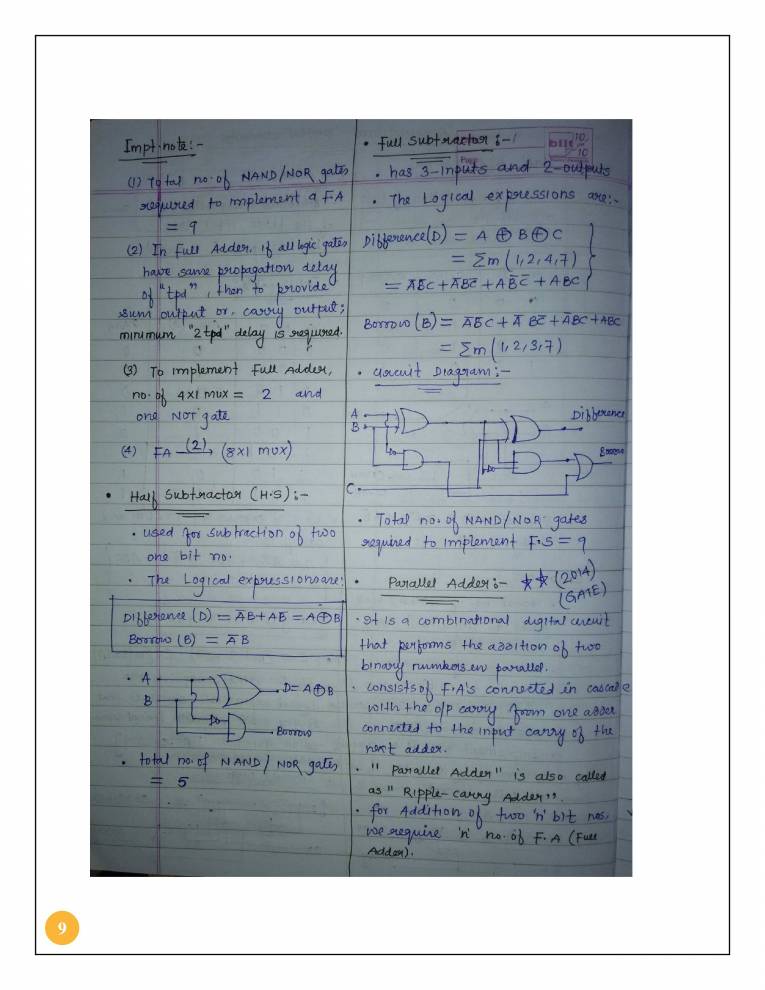 Impt. note:-
(1) Total no. of NAND/NOR gates
required to implement a F.A
= 9
(2) In Full Adder, if all logic gates
have same propagation delay
of "tpd", then to provide
sum output or, carry output;
minimum "2 tpd" delay is required.
(3) To implement Full Adder,
no. of 4x1 mux = 2 and
one NOT gate
(4) FA (2)→ (8x1 mux)
• Half Subtractor (H.S):-
• used for subtraction of two
one bit no.
• The Logical expressions are:
Difference (D) = A̅B + AB̅ = A⊕B
Borrow (B) = A̅B
• A
B
D = A⊕B
Borrow
• total no. of NAND/NOR gates
= 5
• Full Subtractor:-
bilt 10/10
• has 3-inputs and 2-outputs
• The Logical expressions are:-
Difference(D) = A ⊕ B ⊕ C
= Σm (1,2,4,7)
= A̅B̅C + A̅BC̅ + AB̅C̅ + ABC
Borrow (B) = A̅B̅C + A̅BC̅ + A̅BC + ABC
= Σm (1,2,3,7)
• Circuit Diagram:-
A
B
C
Difference
Borrow
• Total no. of NAND/NOR gates
required to implement F.S = 9
• Parallel Adder:- ★★ (2014)
(GATE)
• It is a combinational digital circuit
that performs the addition of two
binary numkers in parallel.
• consists of F.A's connected in cascade
with the o/p carry from one adder
connected to the input carry of the
next adder.
• "Parallel Adder" is also called
as "Ripple-carry Adder".
• for Addition of two 'n' bit nos.
we require 'n' no. of F.A (Full
Adder).
9